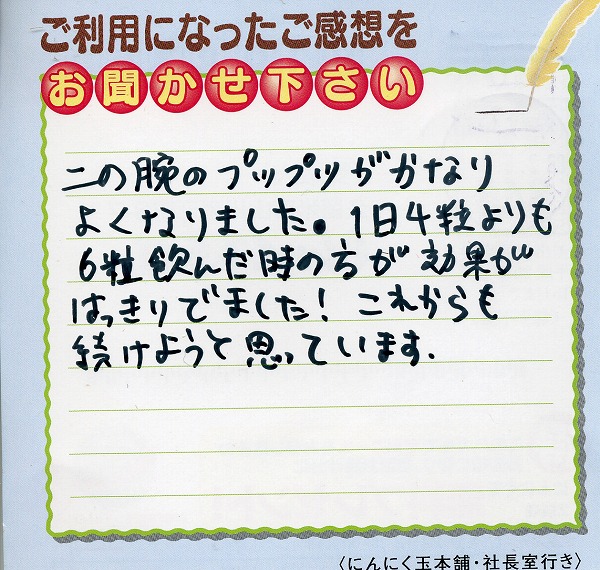 ご利用になったご感想を
お聞かせ下さい
二の腕のプップツがかなり
よくなりました。1日4粒よりも
6粒飲んだ時の方が効果が
はっきりでました！これからも
続けようと思っています.
〈にんにく玉本舗・社長室行き〉